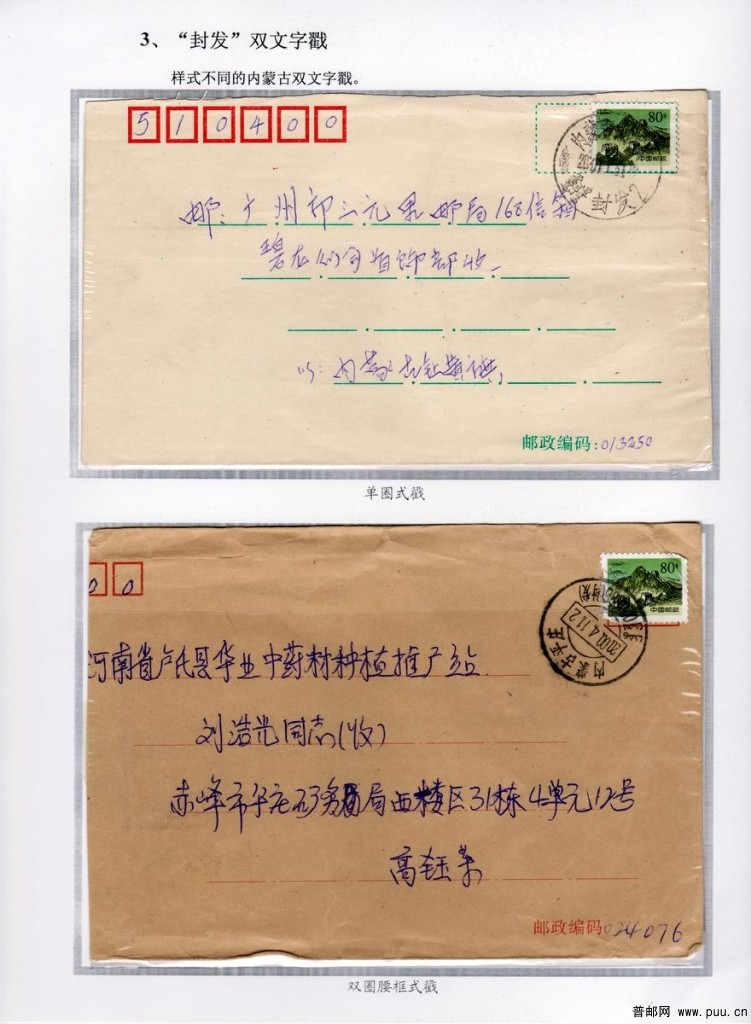 3、“封发”双文字戳
样式不同的内蒙古双文字戳。
510400
80分
中国邮政
封发2
邮:广州市三元里邮局168信箱
首饰部收
内蒙古
邮政编码:013250
单圈式戳
80分
中国邮政
00
2000.4.11.2
内蒙古平庄
河南省卢氏县华业中药材种植推广站
刘浩光同志(收)
赤峰市平庄矿务局西楼区31栋4单元12号
高钰荣
邮政编码024076
双圈腰框式戳
普邮网 www.puu.cn